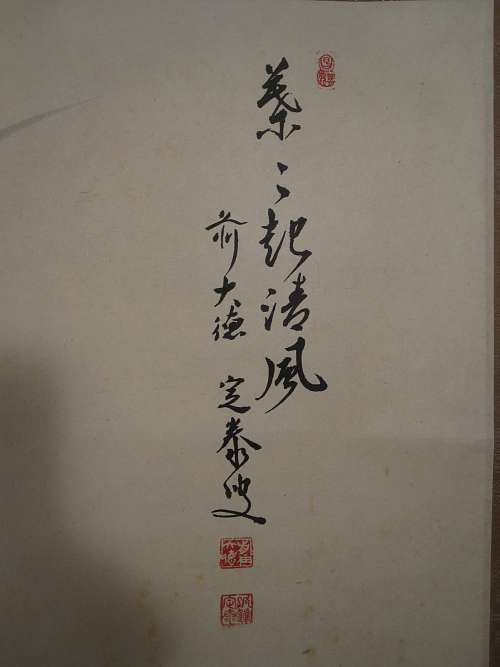 葉〻起清風
前大徳 定泰叟